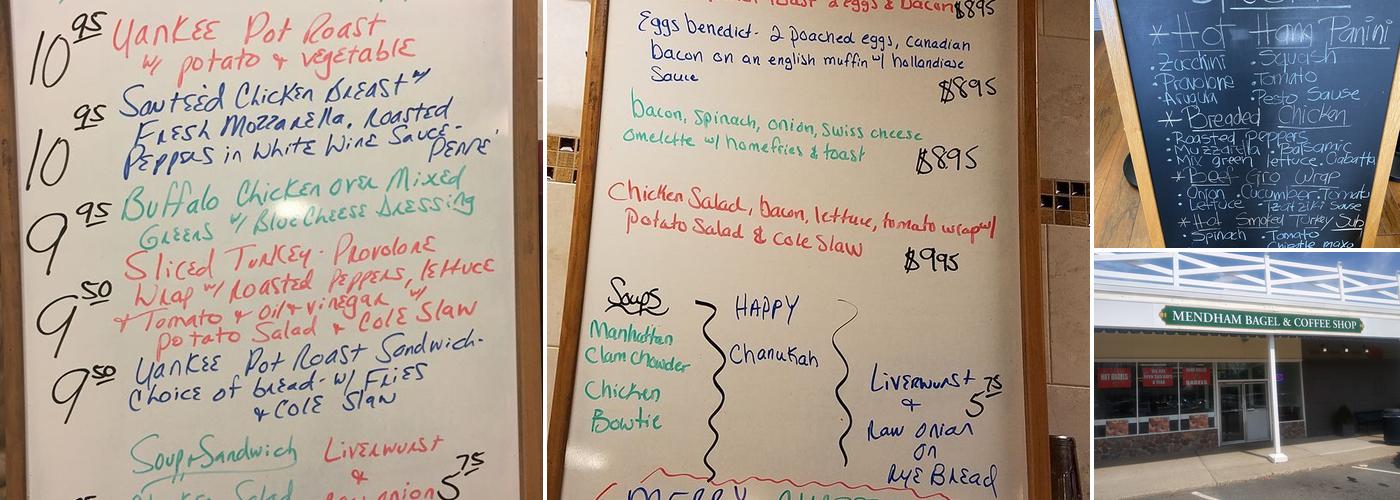 10 95 Yankee Pot Roast
w/ potato & vegetable
10 95 Sauteéd Chicken Breast w/
Fresh Mozzarella, Roasted
Peppers in White Wine Sauce-
Penne
9 95 Buffalo Chicken over Mixed
Greens w/ Blue Cheese Dressing
9 50 Sliced Turkey - Provolone
Wrap w/ Roasted Peppers, lettuce
& Tomato & oil & vinegar w/
potato Salad & Cole Slaw
9 50 Yankee Pot Roast Sandwich-
Choice of bread - w/ Fries
& Cole Slaw
Soup & Sandwich
Liverwurst
&
raw onion 5 75
toast 2 eggs & bacon $8.95
Eggs benedict - 2 poached eggs, canadian
bacon on an english muffin w/ hollandiase
Sauce
$8.95
bacon, spinach, onion, swiss cheese
omelette w/ homefries & toast
$8.95
Chicken Salad, bacon, lettuce, tomato wrap w/
potato Salad & Cole Slaw
$9.95
Soups
Manhattan
Clam Chowder
Chicken
Bowtie
HAPPY
Chanukah
Liverwurst 5 75
&
Raw Onion
on
Rye Bread
MERRY
* Hot Ham Panini
• Zucchini • Squash
• Provolone • Tomato
• Arugula • Pesto Sause
* Breaded Chicken
• Roasted Peppers
• Muzzarilla • Balsamic
• Mix green lettuce. Ciabatta
* Beef Giro Wrap
• Onion • Cucumber • Tomato
• Lettuce • Tzitziki Sauce
* Hot Smoked Turkey Sub
• Spinach • Tomato
Chipotle mayo
MENDHAM BAGEL & COFFEE SHOP